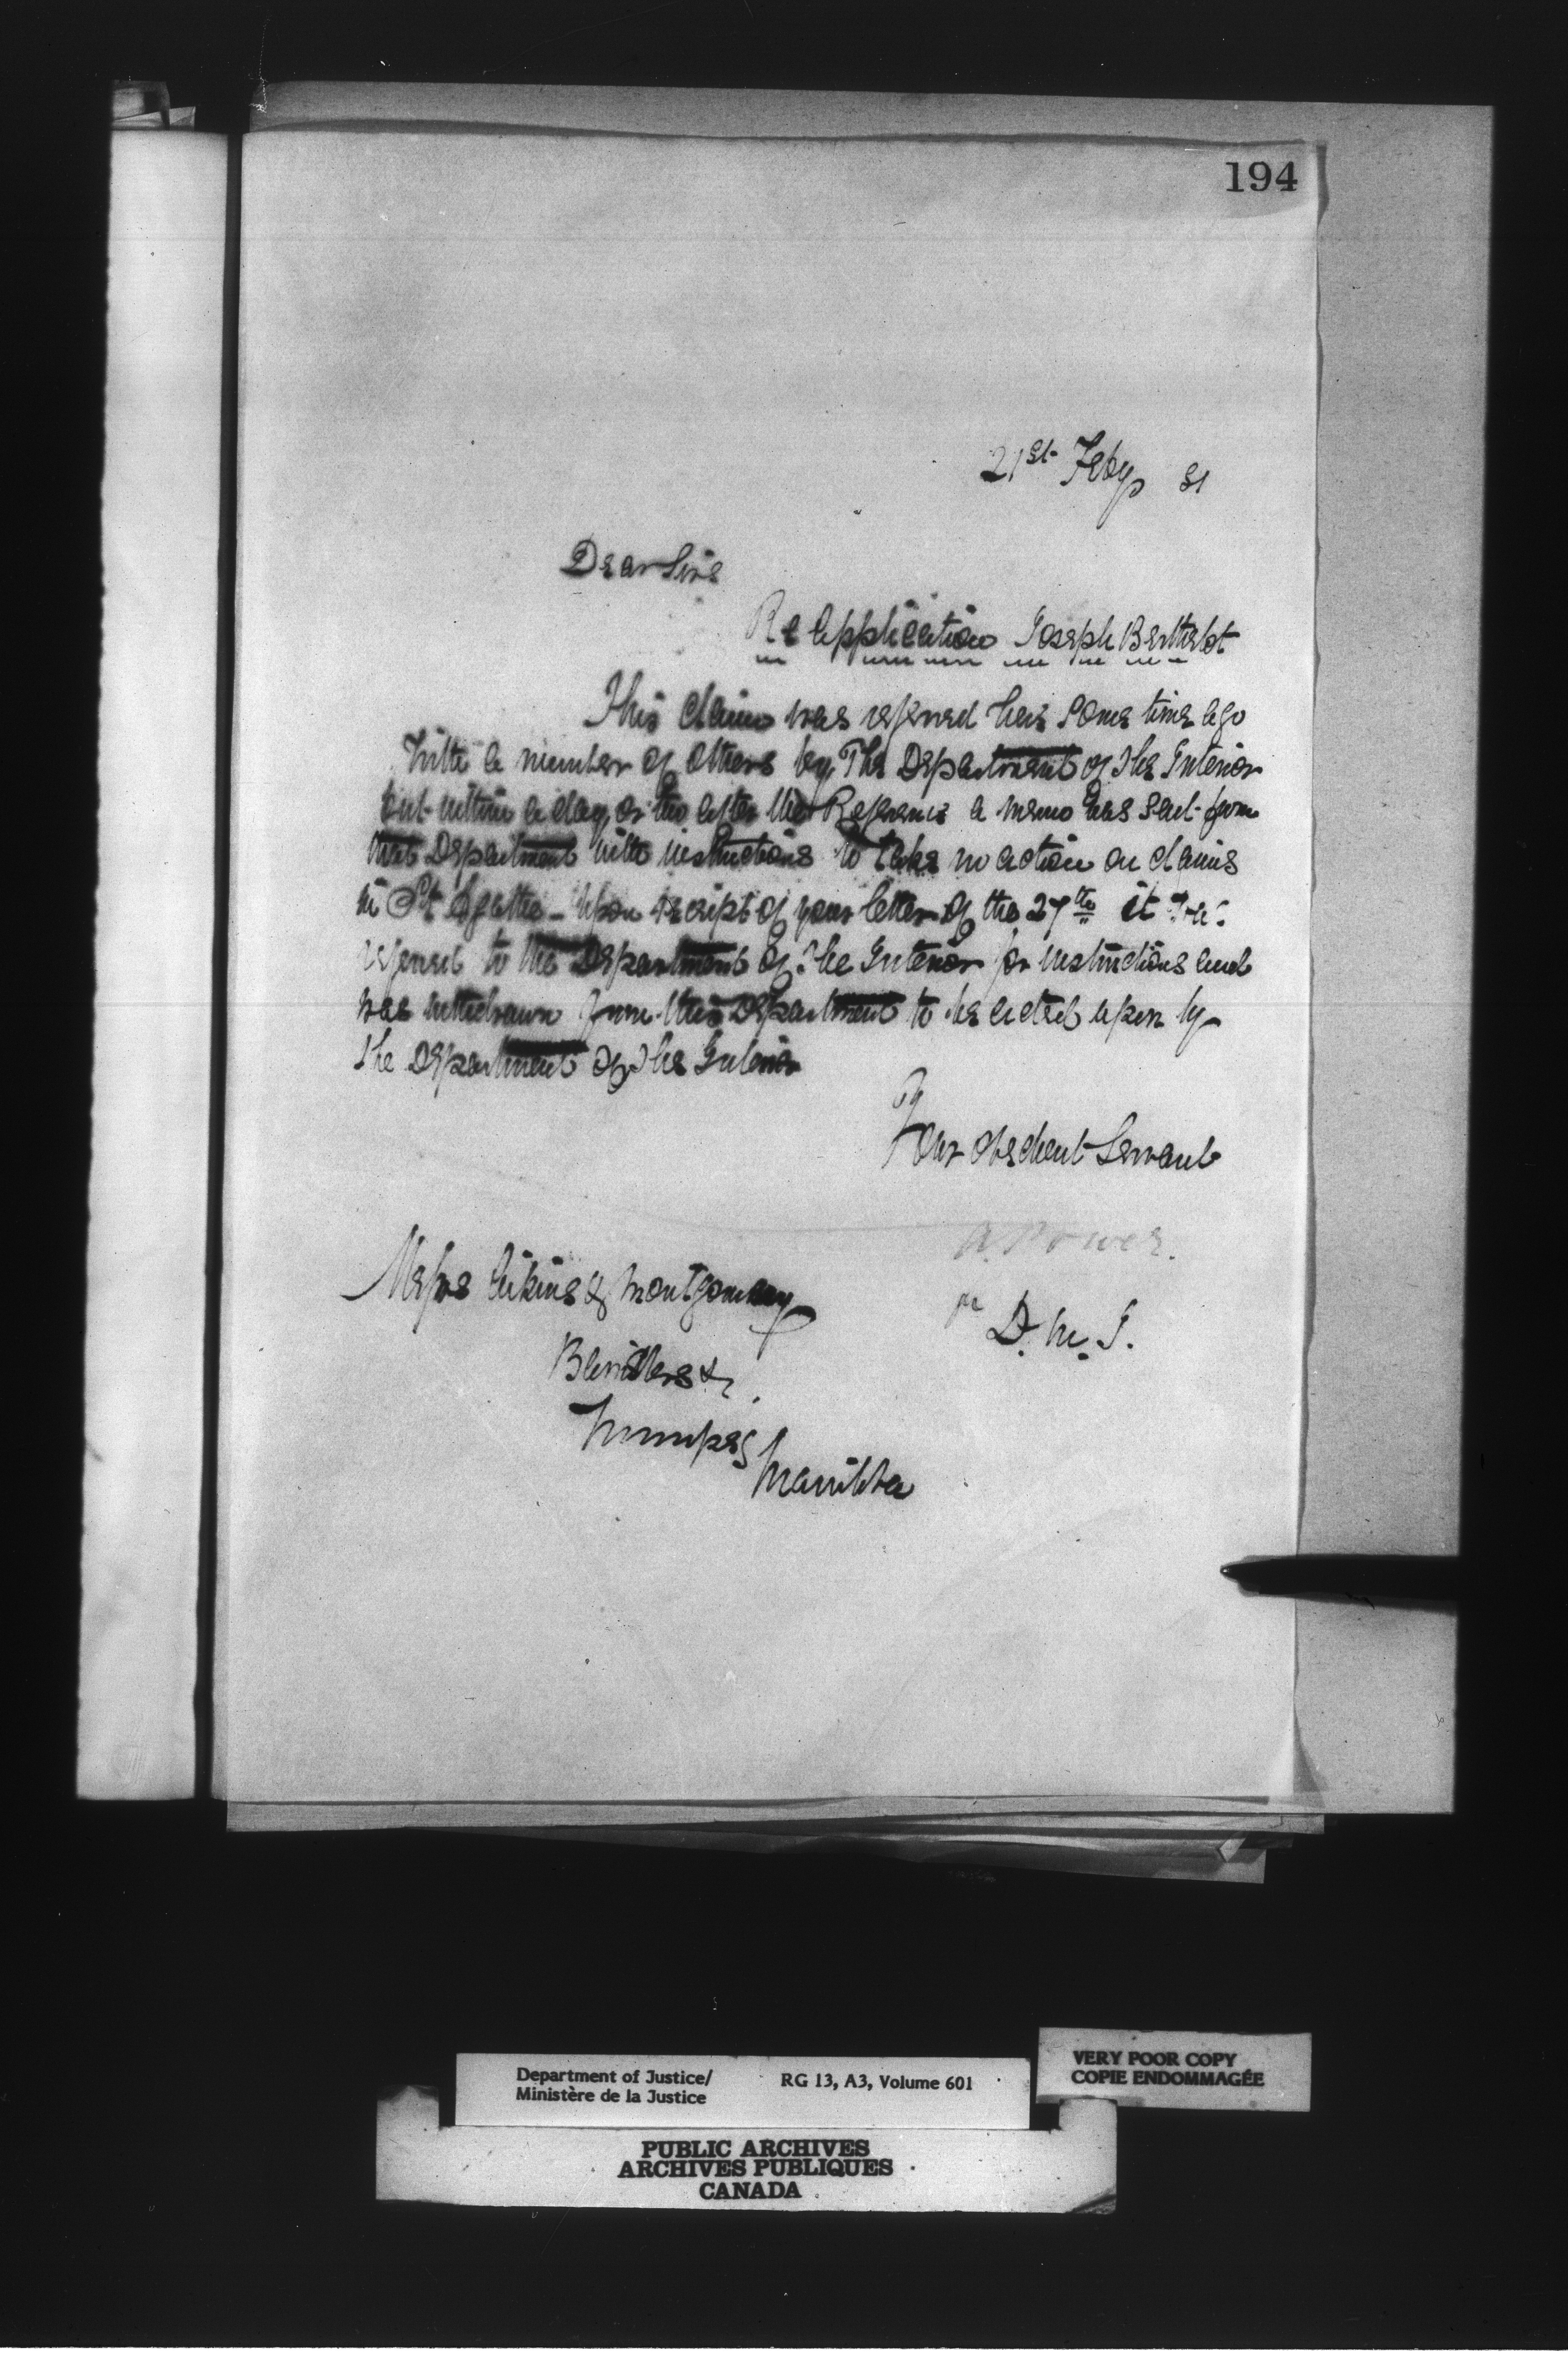 194
21st Feby 81
Dear Sirs
Re Application Joseph Berthelot
This claim was referred here some time ago
with a number of others by The Department of The Interior
but within a day or two after the Reference a memo was sent from
that Department with instructions to take no action on claims
in St Agathe - Upon receipt of your letter of the 27th it was
referred to the Department of The Interior for instructions and
was withdrawn from this Department to be acted upon by
The Department of The Interior
Your obedient Servant
A. Power.
pr D. M. J.
Messrs Aikins & Montgomery
Barristers &c
Winnipeg
Manitoba
Department of Justice/
Ministère de la Justice
RG 13, A3, Volume 601
VERY POOR COPY
COPIE ENDOMMAGÉE
PUBLIC ARCHIVES
ARCHIVES PUBLIQUES
CANADA